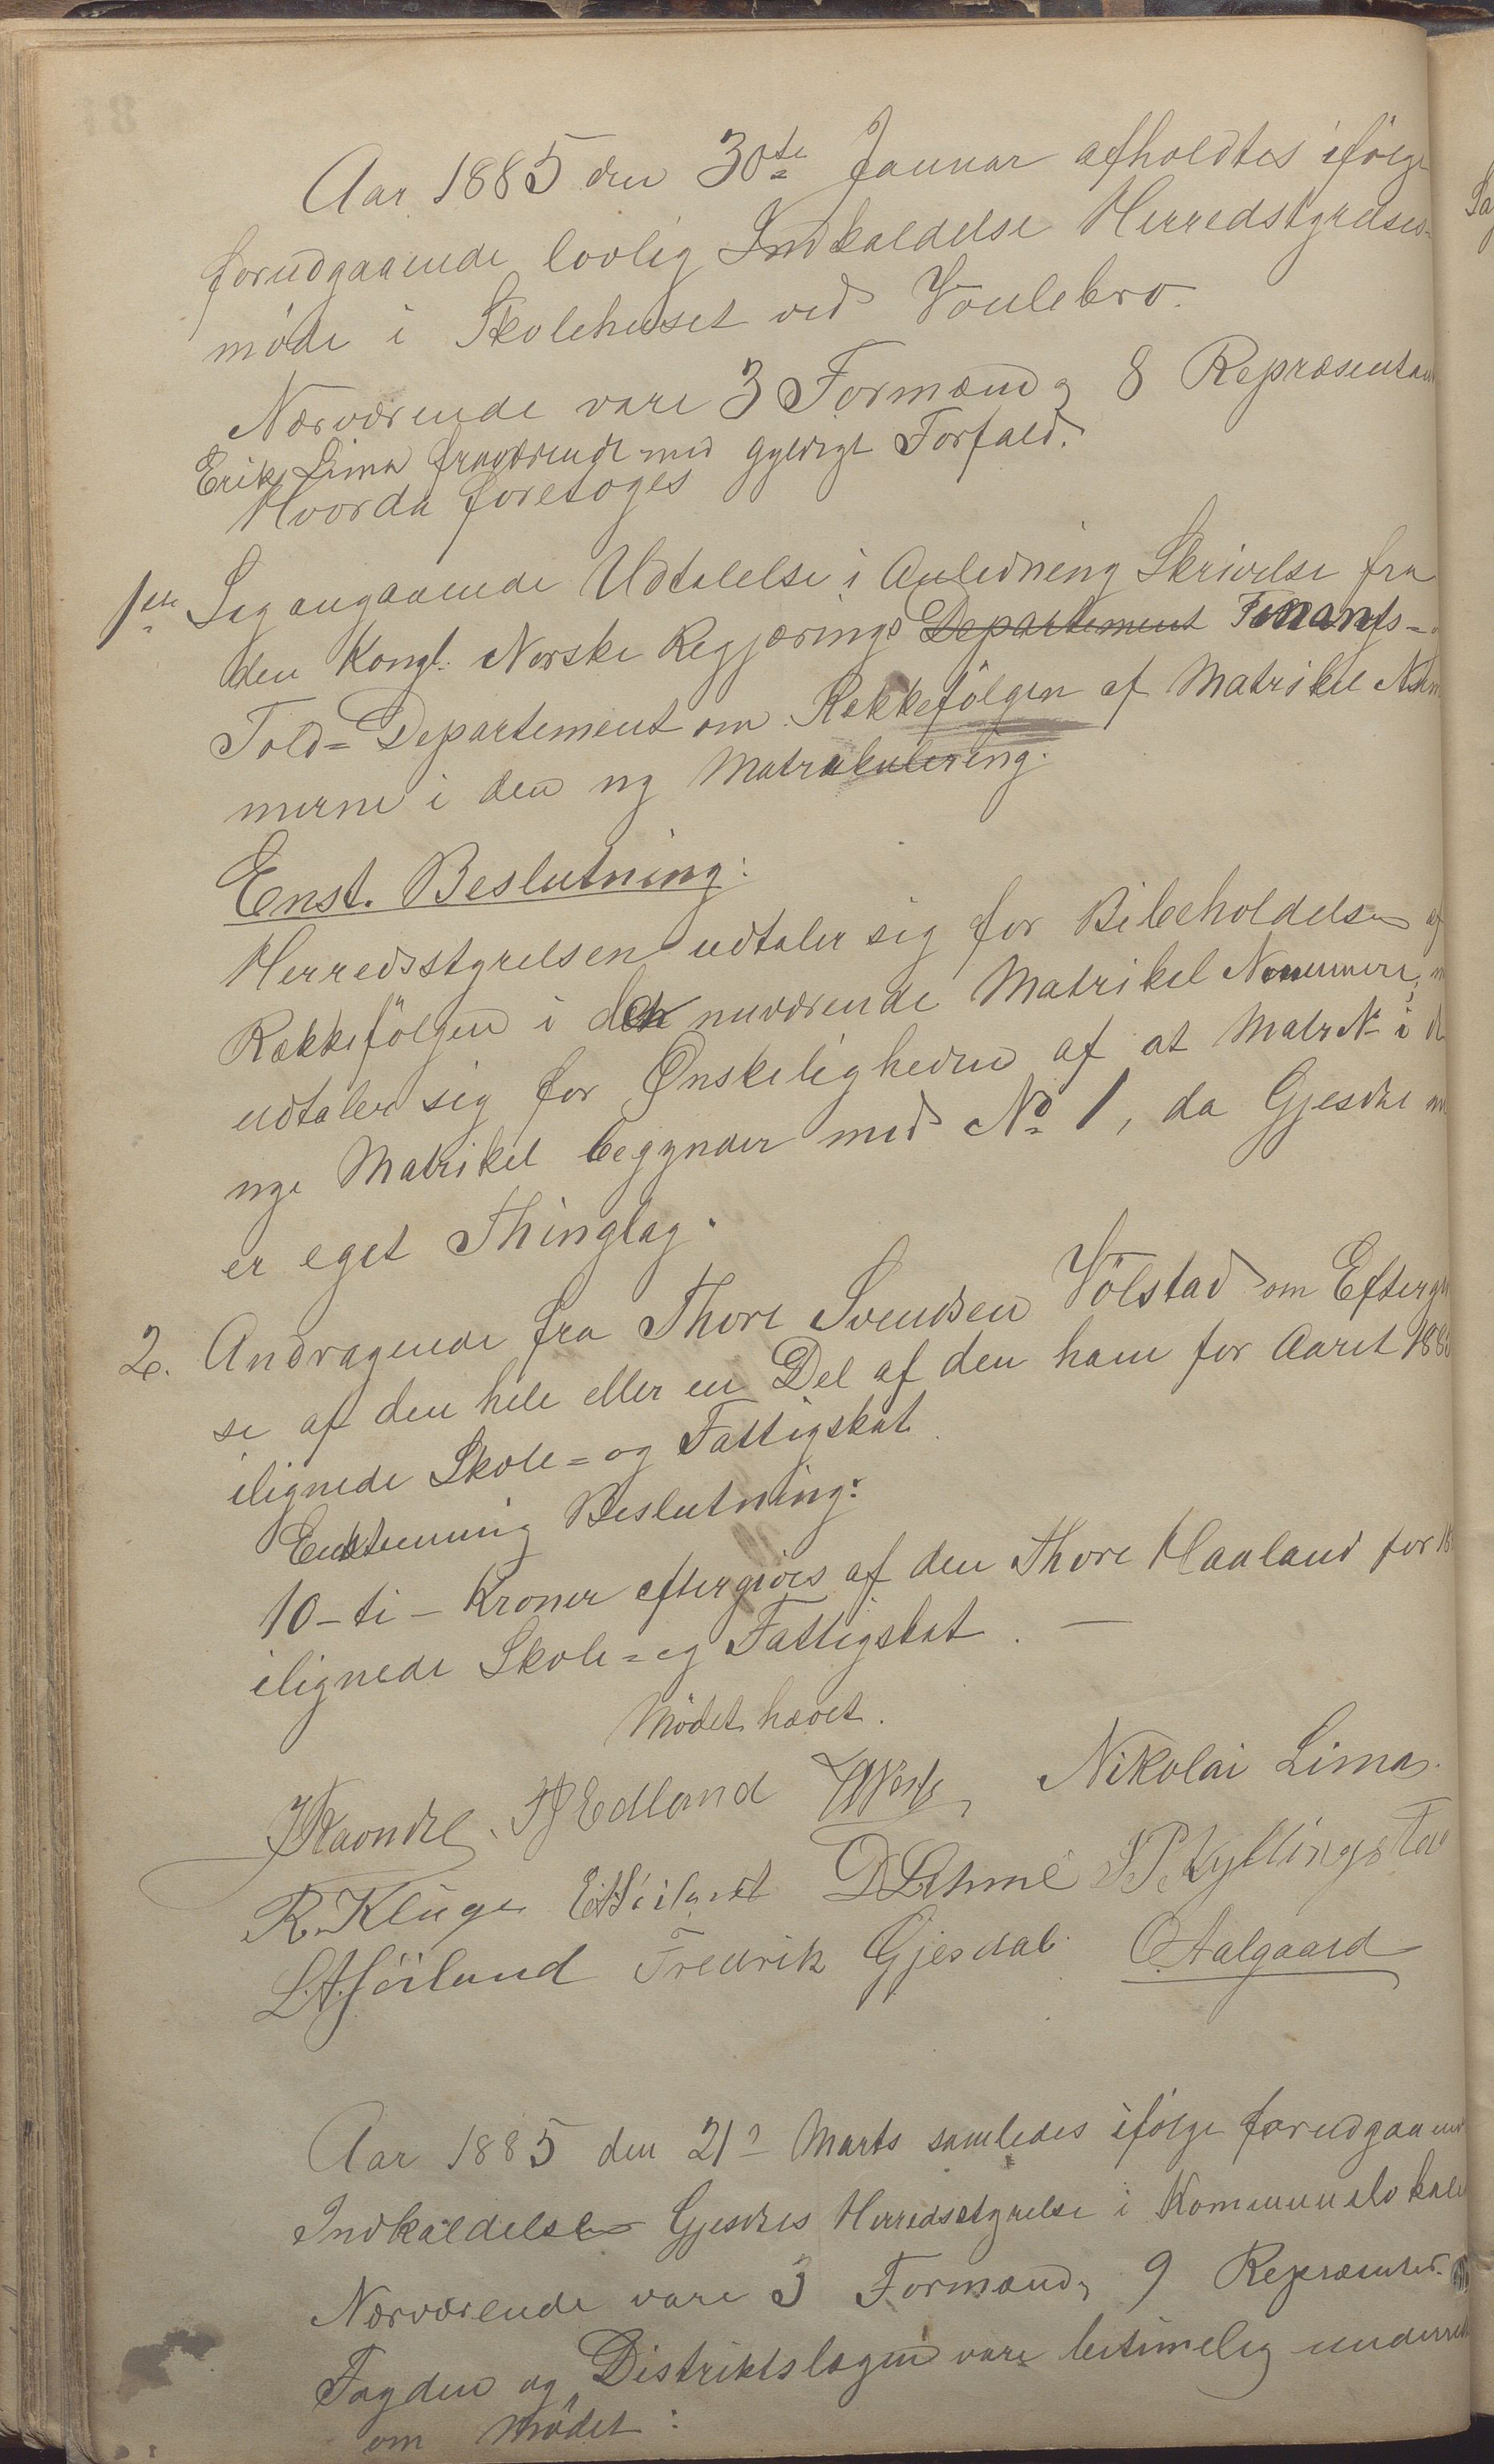 Aar 1885 den 30te Januar afholdtes ifølge
forudgaaende lovlig Indkaldelse Herredstyrelses-
møde i Skolehuset ved Voulebro.
Nærværende vare 3 Formænd og 8 Repræsentan
Erik Lima fraværende med gyldigt Forfald.
Hvorda foretoges
1ste Sag angaaende Udtalelse i Anledning Skrivelse fra
den Kongl. Norske Regjærings Departement Finants-
Told- Departement om Rækkefølgen af Matrikel Num
merne i den ny Matrikulering.
Enst. Beslutning:
Herredsstyrelsen udtaler sig for Bibeholdelsen af
Rækkefølgen i den nuværende Matrikel Nummere,
udtaler sig for Ønskeligheden af at Matr№ i d
nye Matrikel begynder med No 1, da Gjesdal nu
er eget Thinglag.
2. Andragende fra Thore Svendsen Vølstad om Eftergi
se af den hele eller en Del af den ham for Aaret 188
ilignede Skole- og Fattigskat.
Enstemmig Beslutning:
10 - ti - Kroner eftergives af den Thore Haaland for 18
ilignede Skole- og Fattigskat. —
Mødet hævet.
Edland Nikolai Lima.
R. Kluge E Høiland S P Kyllingstad
L. A. Høiland Fredrik Gjesdal. O. Aalgaard
Aar 1885 den 21de Marts samledes ifølge forudgaaende
Indkaldelse Gjesdals Herredsstyrelse i Kommunelokale
Nærværende vare 3 Formænd, 9 Repræsented.
Fogden og Distriktslægen vare betimelig underret
om Mødet: